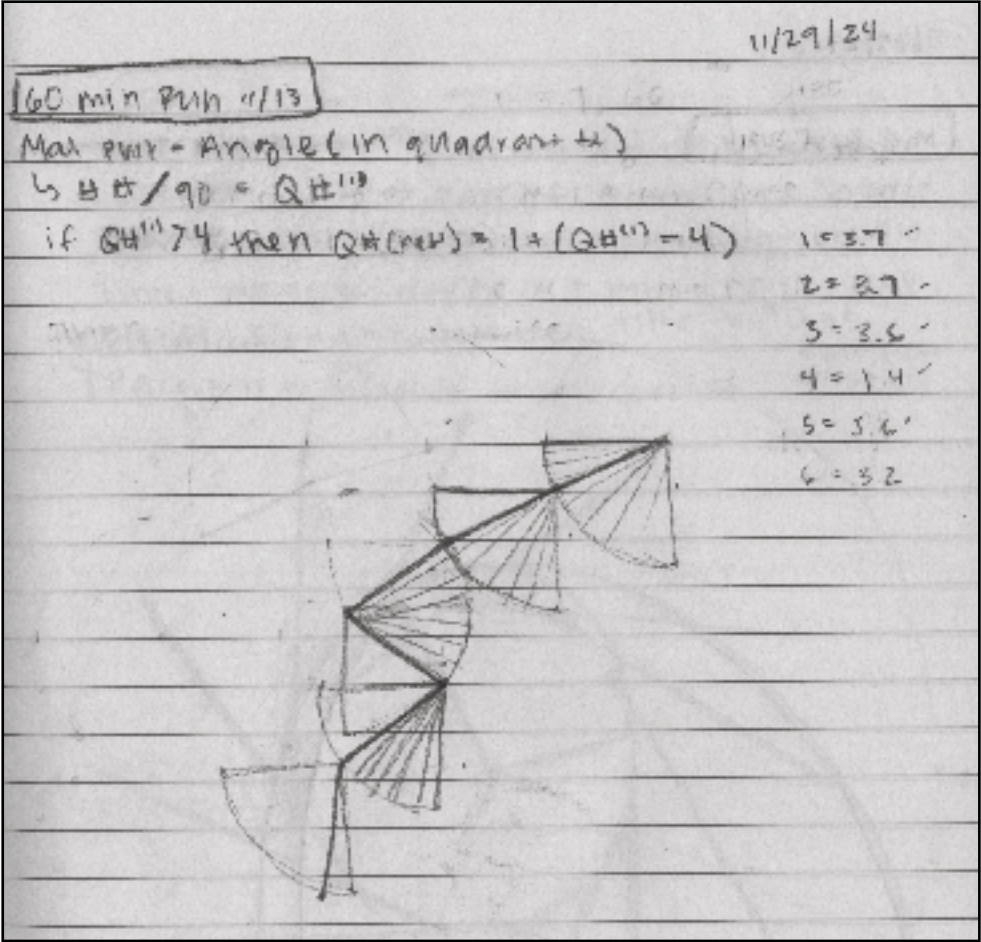 11/29/24
60 min Run 11/13
Max pwr - Angle (in quadrant #)
↳ ## / 90 = Q#⁽¹⁾
if Q#⁽¹⁾ > 4, then Q#(new) = 1 + (Q#⁽¹⁾ - 4)
1 = 3.7
2 = 3.7
3 = 3.6
4 = 1.4
5 = 3.6
6 = 3.2